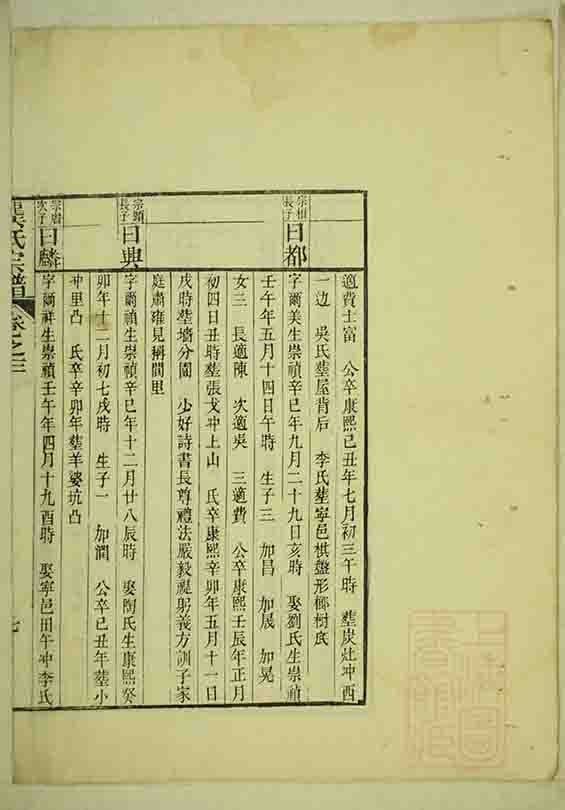 適費士富 公卒康熙己丑年七月初三午時 塟炭灶冲西
一边 吳氏塟屋背后 李氏塟寧邑棋盤形槨樹底
宗相長子 日都
字爾美生崇禎辛巳年九月二十九日亥時 娶劉氏生崇禎
壬午年五月十四日午時 生子三 加昌 加晟 加晃
女三 長適陳 次適吳 三適費 公卒康熙壬辰年正月
初四日丑時塟張戈冲上山 氏卒康熙辛卯年五月十一日
戌時塟墻分園 少好詩書長尊禮法嚴毅禔躬義方訓子家
庭肅雍見稱閭里
宗顯長子 日典
字爾禎生崇禎辛巳年十二月廿八辰時 娶陶氏生康熙癸
卯年十二月初七戌時 生子一 加澗 公卒己丑年塟小
冲里凸 氏卒辛卯年塟羊婆坑凸
次子 日麟
字爾祥生崇禎壬午年四月十九酉時 娶寧邑田午冲李氏
吳氏宗譜 卷之三 七